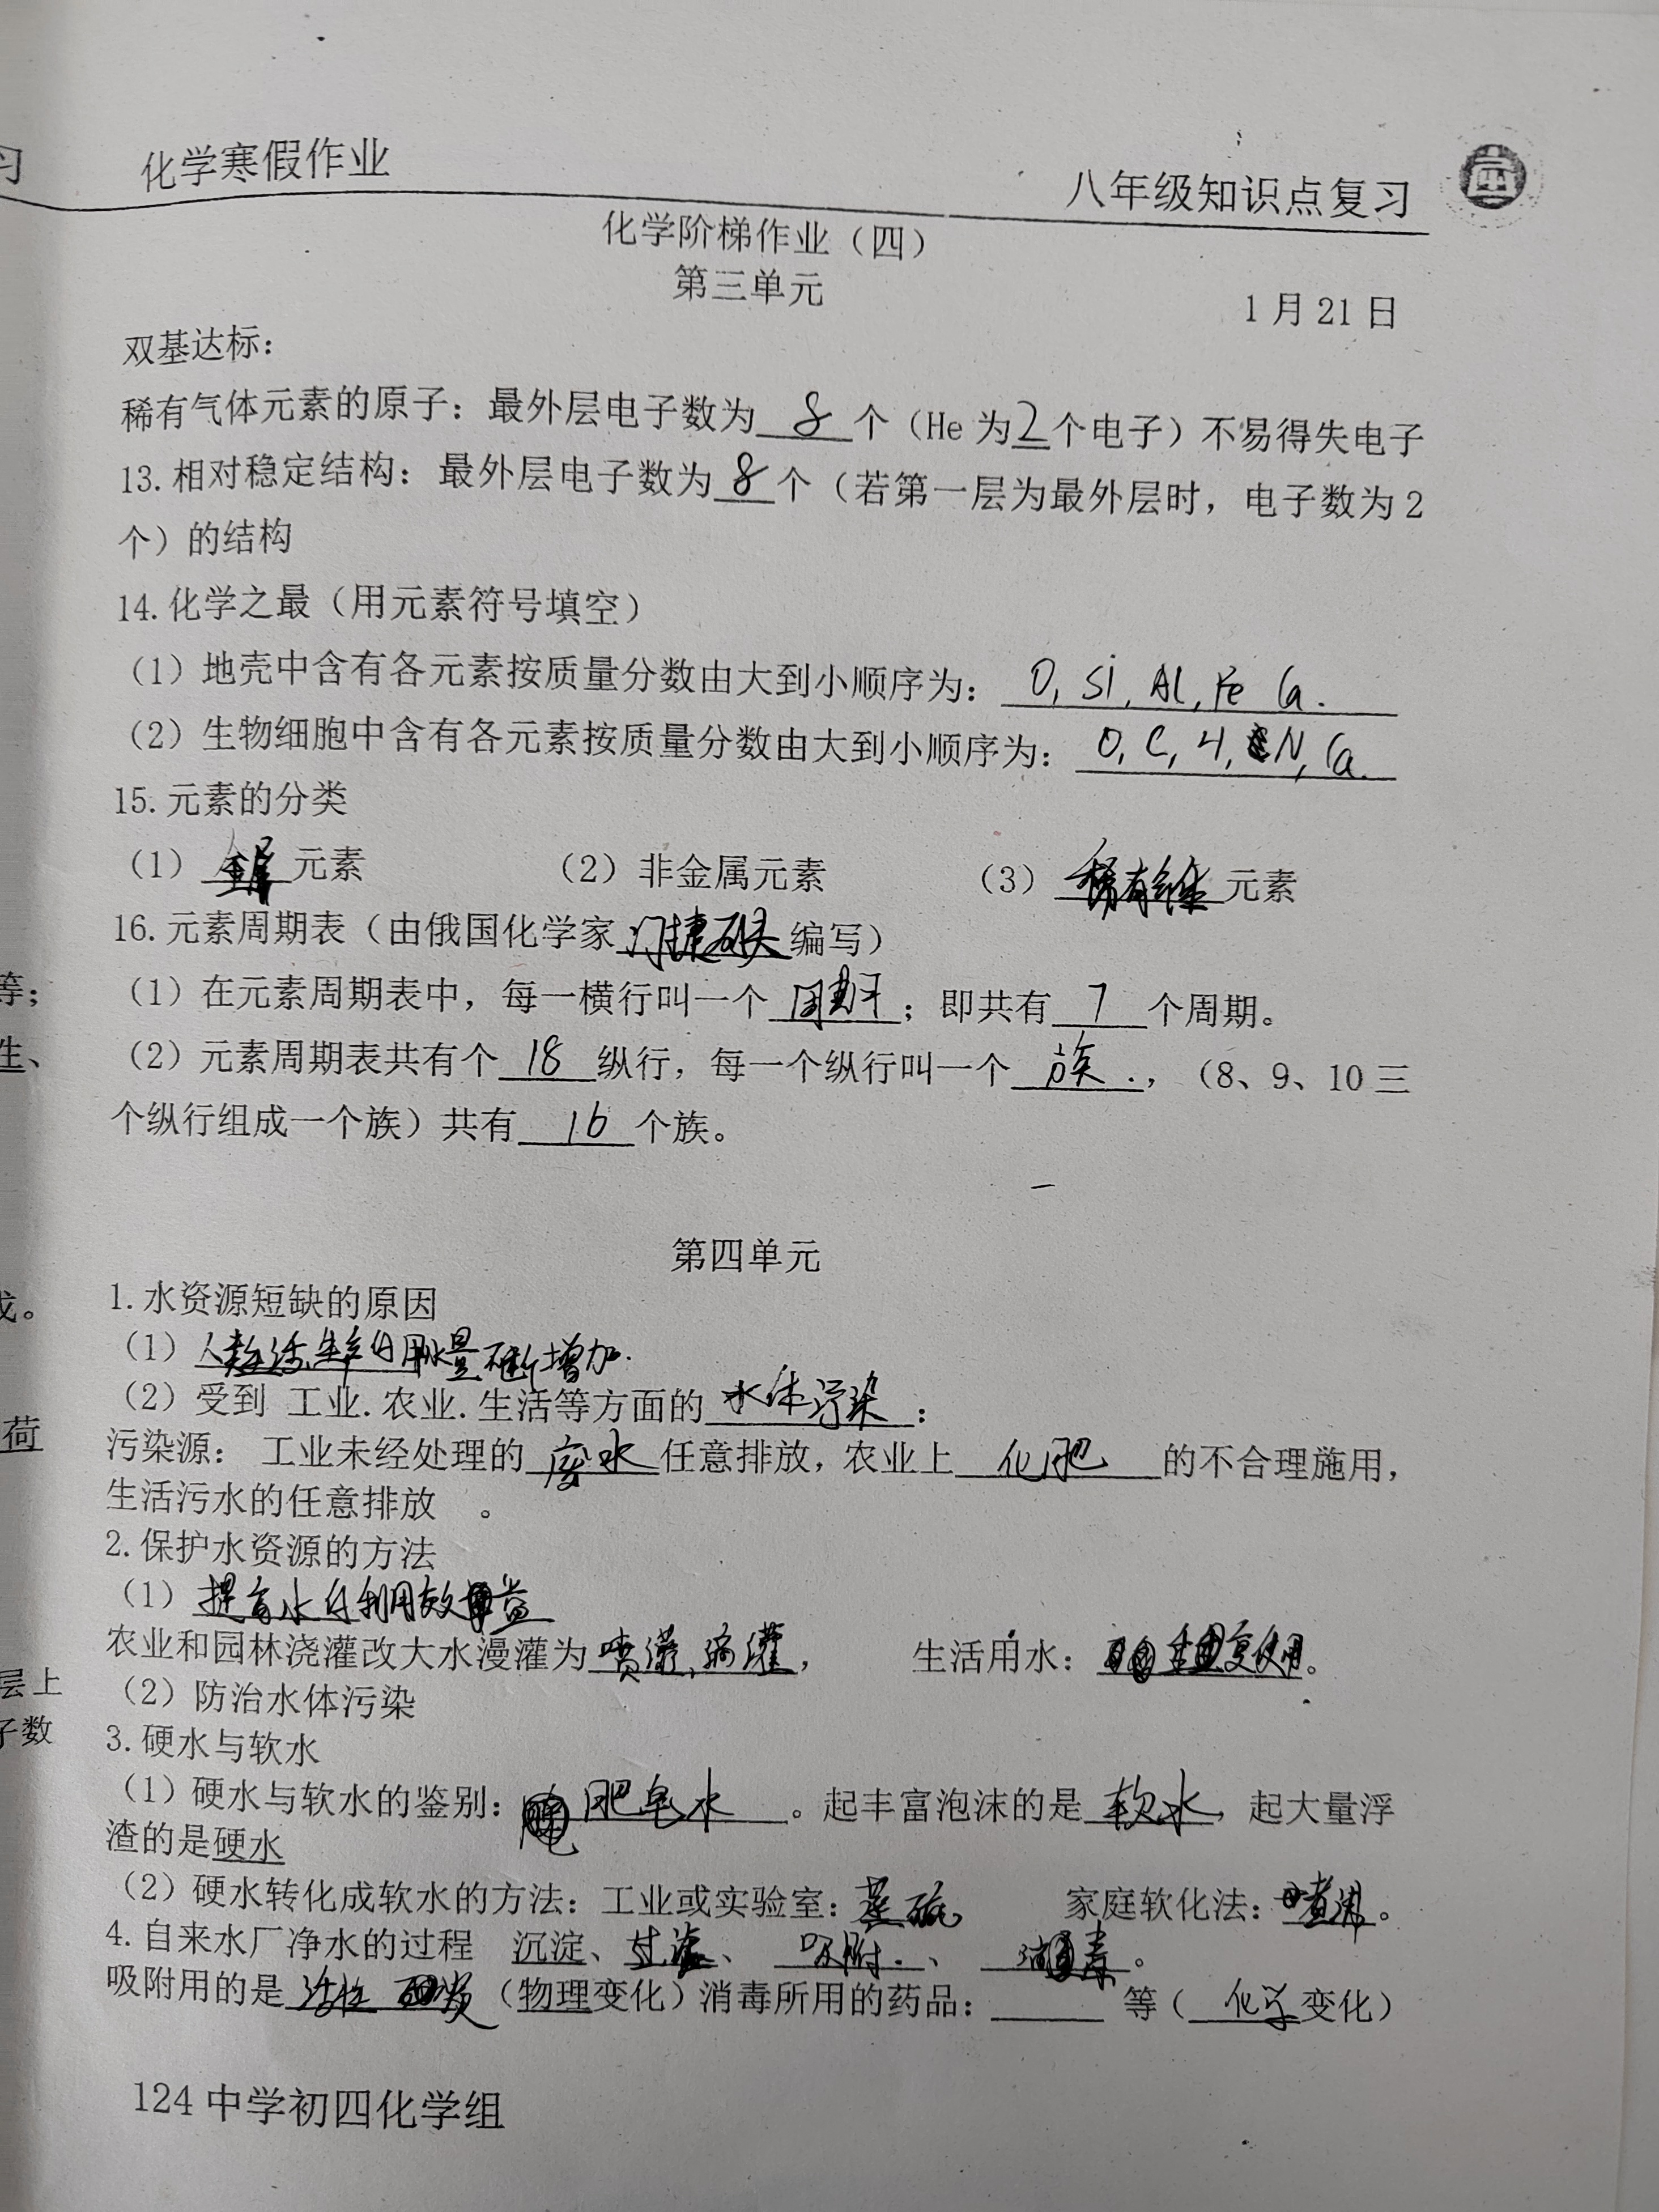 习 化学寒假作业 八年级知识点复习
化学阶梯作业（四）
第三单元
1月21日
双基达标：
稀有气体元素的原子：最外层电子数为 8 个（He 为2个电子）不易得失电子
13.相对稳定结构：最外层电子数为 8 个（若第一层为最外层时，电子数为2
个）的结构
14.化学之最（用元素符号填空）
（1）地壳中含有各元素按质量分数由大到小顺序为：O, Si, Al, Fe Ca.
（2）生物细胞中含有各元素按质量分数由大到小顺序为：O, C, H, N, Ca.
15.元素的分类
（1）金属元素 （2）非金属元素 （3）稀有气体元素
16.元素周期表（由俄国化学家门捷列夫编写）
等； （1）在元素周期表中，每一横行叫一个 周期；即共有 7 个周期。
生、 （2）元素周期表共有个 18 纵行，每一个纵行叫一个 族.，（8、9、10三
个纵行组成一个族）共有 16 个族。
第四单元
1.水资源短缺的原因
（1）人类生活、生产的用水量不断增加.
（2）受到 工业.农业.生活等方面的 水体污染：
荷 污染源： 工业未经处理的 废水 任意排放，农业上 化肥 的不合理施用，
生活污水的任意排放 。
2.保护水资源的方法
（1）提高水的利用效益
农业和园林浇灌改大水漫灌为 喷灌,滴灌， 生活用水：使用。
层上 （2）防治水体污染
子数 3.硬水与软水
（1）硬水与软水的鉴别： 肥皂水 。起丰富泡沫的是 软水，起大量浮
渣的是硬水
（2）硬水转化成软水的方法：工业或实验室：蒸馏 家庭软化法：煮沸。
4.自来水厂净水的过程 沉淀、过滤、 吸附.、 消毒。
吸附用的是 活性炭（物理变化）消毒所用的药品： 等（ 化学变化）
124中学初四化学组